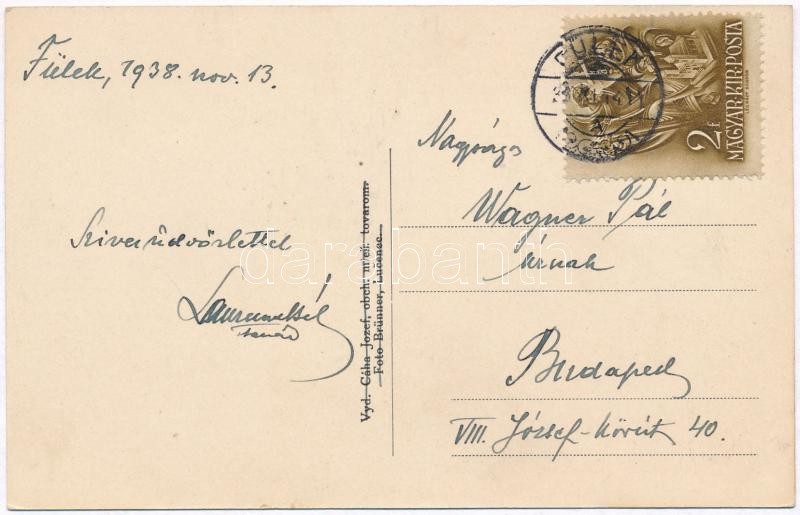 Fülek, 1938. nov. 13.
Szives üdvözlettel
tanár
Vyd. Cáha Jozef, obch. m/eš. tovarom.
Foto Brünner, Lučenec.
FÜLEK
2f
MAGYAR·KIR·POSTA
Nagyságos
Wagner Pál
úrnak
Budapest
VIII. József-körút 40.
darabanth